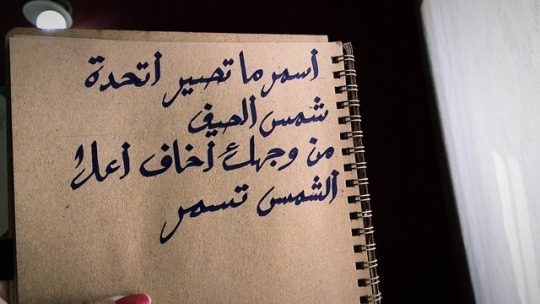 أسمر ما تصير أتحدة
شمس ألصيف
من وجهك أخاف أعلى
ألشمس تسمر